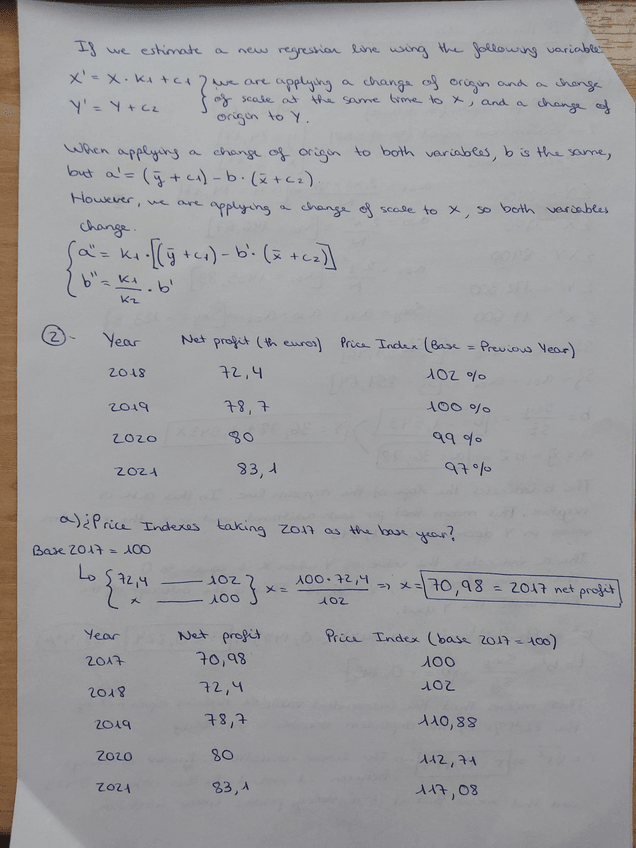 If we estimate a new regression line using the following variable
X' = X · K1 + C1 } we are applying a change of origin and a change
Y' = Y + C2 } of scale at the same time to X, and a change of
origin to Y.
When applying a change of origin to both variables, b is the same,
but a' = (ȳ + C1) - b · (x̄ + C2).
However, we are applying a change of scale to X, so both variables
change.
{ a'' = K1 · [(ȳ + C1) - b' · (x̄ + C2)]
{ b'' = K1/K2 · b'
②- Year Net profit (th euros) Price Index (Base = Previous Year)
2018 72,4 102 %
2019 78,7 100 %
2020 80 99 %
2021 83,1 97 %
a) ¿Price Indexes taking 2017 as the base year?
Base 2017 = 100
↳ { 72,4 — 102 } x = 100 · 72,4 / 102 => x = 70,98 = 2017 net profit
{ x — 100 }
Year Net profit Price Index (base 2017 = 100)
2017 70,98 100
2018 72,4 102
2019 78,7 110,88
2020 80 112,71
2021 83,1 117,08